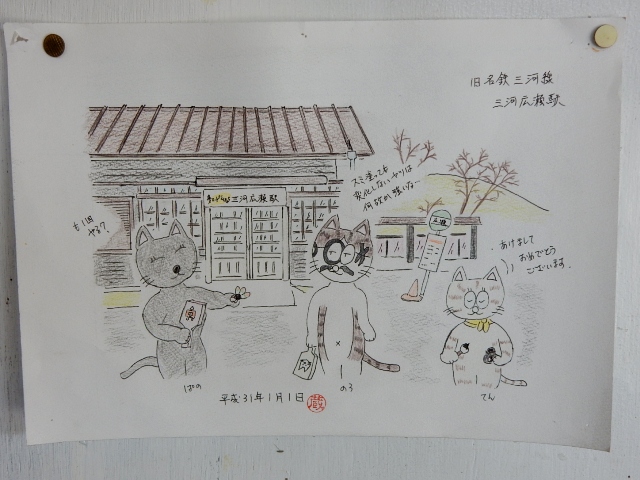 旧名鉄三河線
三河広瀬駅
もう1回
やる?
スミ塗っても
変化しないヤツは
何故か強いなー
三河広瀬駅
あけまして
おめでとう
ございます。
ぱの
のろ
てん
平成31年1月1日
蔵